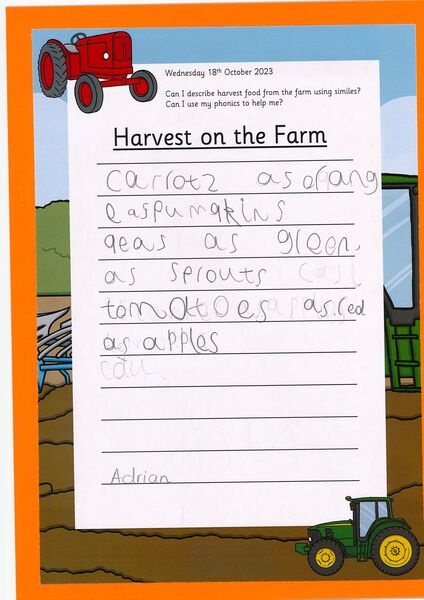 Wednesday 18th October 2023
Can I describe harvest food from the farm using similes?
Can I use my phonics to help me?
Harvest on the Farm
carrots as orang
e as pumpkins
peas as green
as sprouts
tomatoes as red
as apples
Adrian